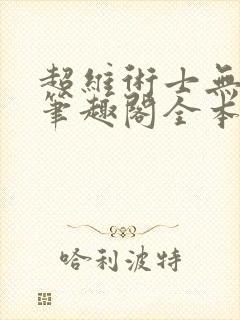 超維術士無
筆趣閣全本
哈利波特